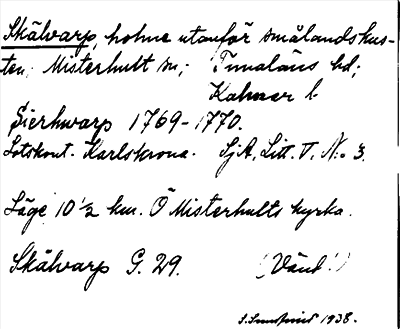 Skälvarp, holme utanför smålandskus-
ten, Misterhult sn; Tunaläns hd;
Kalmar l.
Sierhwarp 1769-1770.
Lotskont. Karlskrona. SjA, Litt. V, No 3.
Läge 10 ½ km. Ö Misterhults kyrka.
Skälvarp G. 29. (Vänd!)
1938.